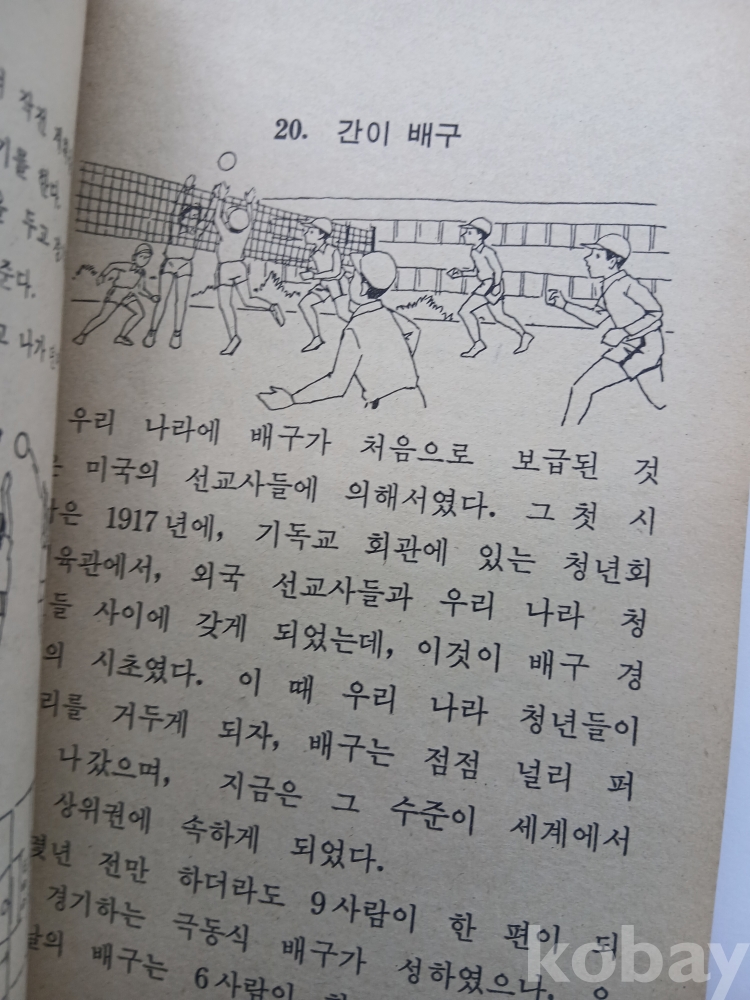 작전
기를 한다.
두고
준다.
고 나가
20. 간이 배구
우리 나라에 배구가 처음으로 보급된 것
은 미국의 선교사들에 의해서였다. 그 첫 시
은 1917년에, 기독교 회관에 있는 청년회
육관에서, 외국 선교사들과 우리 나라 청
들 사이에 갖게 되었는데, 이것이 배구 경
의 시초였다. 이 때 우리 나라 청년들이
리를 거두게 되자, 배구는 점점 널리 퍼
나갔으며, 지금은 그 수준이 세계에서
상위권에 속하게 되었다.
몇년 전만 하더라도 9사람이 한 편이 되
경기하는 극동식 배구가 성하였으나, 오
날의 배구는 6사람이
kobay